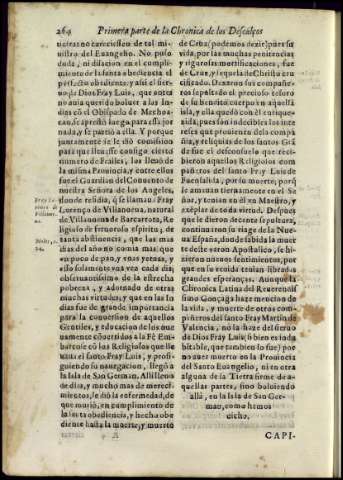 264 Primera parte de la Chronica de los Descalços
no tenerse de tal mi-
nistro del Evangelio. No puso
duda, ni dilacion en el cumpli-
miento de la santa obediencia el
perfecto obediente, y assi el sier-
vo de Dios Fray Luis, que antes
no avia querido bolver a las In-
dias cõ el Obispado de Mechoa-
can, se aprestò luego, para esta jor-
nada, y se partio a ella. Y porque
juntamente se le diò comission
para que llevasse consigo cierto
numero de Frailes, los llevò de
la misma Provincia, y entre ellos
fue el Guardian del Convento de
nuestra Señora de los Angeles,
donde residia, q̃ se llamava Fray
Lorenço de Villanueva, natural
de Villanueva de Barcarrota, Re-
ligioso de fervoroso espiritu; de
tanta abstinencia, que los mas
dias del año no comia mas; que
un poco de pan, y unas yervas, y
esto solamente una vez cada dia;
observantissimo de la estrecha
pobreza, y adornado de otras
muchas virtudes; y que en las In-
dias fue de grande importancia
para la conversion de aquellos
Gentiles, y educacion de los nue-
vamente cõvertidos a la Fè. Em-
barcose cõ los Religiosos que lle-
vava el santo Fray Luis, y prosi-
guiendo su navegacion, llegò a
la Isla de San German. Alli lleno
de dias, y mucho mas de mereci-
mientos, le diò la enfermedad, de
que murió, en cumplimiento de
la santa obediencia, y hecho obe-
diente hasta la muerte, y muerto
Fray Lo-
renço de
Villanue-
va.
de Cruz; podemos dezir; pues su
vida, por las muchas penitencias
y rigurosas mortificaciones, fue
de Cruz, y se quela de Christo cru-
cificado. Dexaron sus compañe-
ros sepultado el precioso tesoro
de su bendito cuerpo en aquella
isla, y ella quedò con èl enrique-
da, pues son indecibles los inte-
reses que provienen de la compa-
ñia, y reliquias de los santos. Grã-
de fue el desconsuelo que reci-
bieron aquellos Religiosos com-
pañeros del santo Fray Luis de
Fuensalida, por su muerte; porq̃
se amavan tiernamente en el Se-
ñor, y tenian en èl a vn Maestro, y
exẽplar de toda virtud. Despues
que le dieron decente sepultura,
continuaron su viage de la Nue-
va España, donde sabida la muer-
te deste varon Apostolico, se hi-
zieron nuevos sentimientos, por-
que en su venida tenian libradas
grandes esperanças. Aunque la
Chronica Latina del Reverendis-
simo Gonçaga haze mencion de
la vida, y muerte de otros compa-
ñeros del santo Fray Martin de
Valencia, no la haze del siervo
de Dios Fray Luis; si bien es indu-
bitable, que tambien lo fue) por
no aver muerto en la Provincia
del Santo Evangelio, ni en otra
alguna de la Tierra firme de a-
quellas partes, sino bolviendo
allà, en la Isla de San Ger-
man, como hemos
dicho.
CAPI-